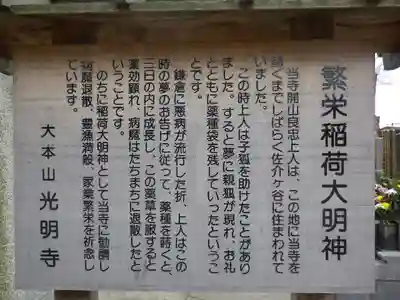 繁栄稲荷大明神
当寺開山良忠上人は、この地に当寺を
築くまでしばらく佐介ヶ谷に住まわれて
いました。
この時上人は子狐を助けたことがあり
ました。すると夢に親狐が現れ、お礼
とともに薬種袋を残していったというこ
とです。
鎌倉に悪病が流行した折、上人はこの
時の夢のお告げに従って、薬種を蒔くと、
三日の内に成長し、この薬草を服すると
薬効顕れ、病魔はたちまちに退散したと
いうことです。
のちに稲荷大明神として当寺に勧請し
病魔退散、豊漁満般、家業繁栄を祈念し
ています。
大本山 光明寺